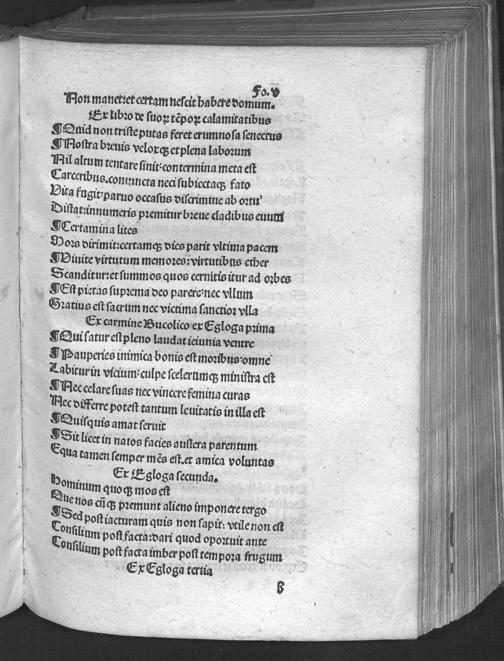 Fo. V
Non manet: et certam nescit habere domum.
Ex libro de suoꝝ tẽpoꝝ calamitatibus
¶Quid non triste putas feret erumnosa senectus
¶Nostra brevis veloxqꝫ et plena laborum
Nil altum tentare sinit: contermina meta est
Carceribus. coniuncta neci subiectaqꝫ fato
Vita fugit: paruo occasus discrimine ab ortu
Distat: innumeris premitur breue cladibus euum
¶Certamina lites
Mors dirimit: certamqꝫ dies parit vltima pacem
¶Viuite virtutum memores: virtutibus ether
Scanditur: et summos quos cernitis itur ad orbes
¶Est pietas suprema deo parere: nec vllum
Gratius est sacrum nec victima sanctior vlla
Ex carmine Bucolico ex Egloga prima
¶Qui satur est pleno laudat ieiunia ventre
¶Pauperies inimica bonis est moribus: omne
Labitur in vicium: culpe scelerumqꝫ ministra est
¶Nec celare suas nec vincere femina curas
Nec differre potest tantum leuitatis in illa est
¶Quisquis amat seruit
¶Sit licet in natos facies austera parentum
Equa tamen semper mẽs est. et amica voluntas
Ex Egloga secunda.
Hominum quoqꝫ mos est
Que nos cũqꝫ premunt alieno imponere tergo
¶Sed post iacturam quis non sapit: vtile non est
Consilium post facta: dari quod oportuit ante
Consilium post facta imber post tempora frugum
Ex Egloga tertia
B